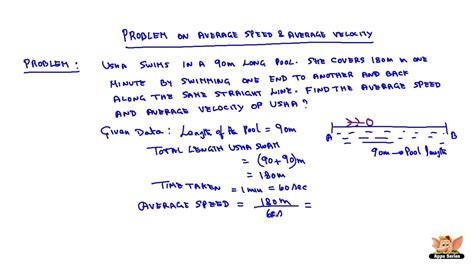 PROBLEM ON AVERAGE SPEED & AVERAGE VELOCITY
PROBLEM : USHA SWIMS IN A 90m LONG POOL. SHE COVERS 180m IN ONE
MINUTE BY SWIMMING ONE END TO ANOTHER AND BACK
ALONG THE SAME STRAIGHT LINE. FIND THE AVERAGE SPEED
AND AVERAGE VELOCITY OF USHA?
Given Data : Length of the Pool = 90m
A B
90m → Pool length
TOTAL LENGTH USHA SWAM
= (90+90)m
= 180m
TIME TAKEN = 1 min = 60 sec
AVERAGE SPEED = 180m / 60s =
Appu Series